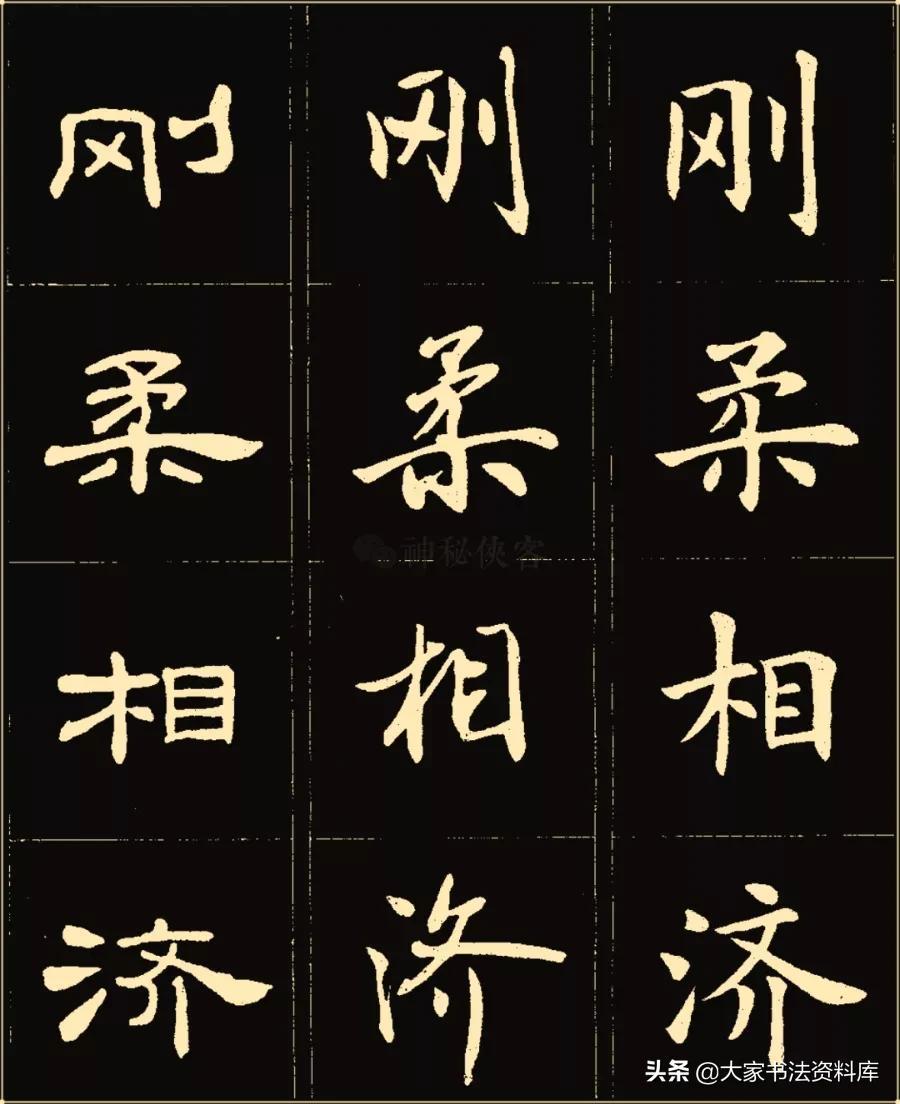 刚 刚 刚
柔 柔 柔
神秘侠客
相 相 相
济 济 济
头条 @大家书法资料库